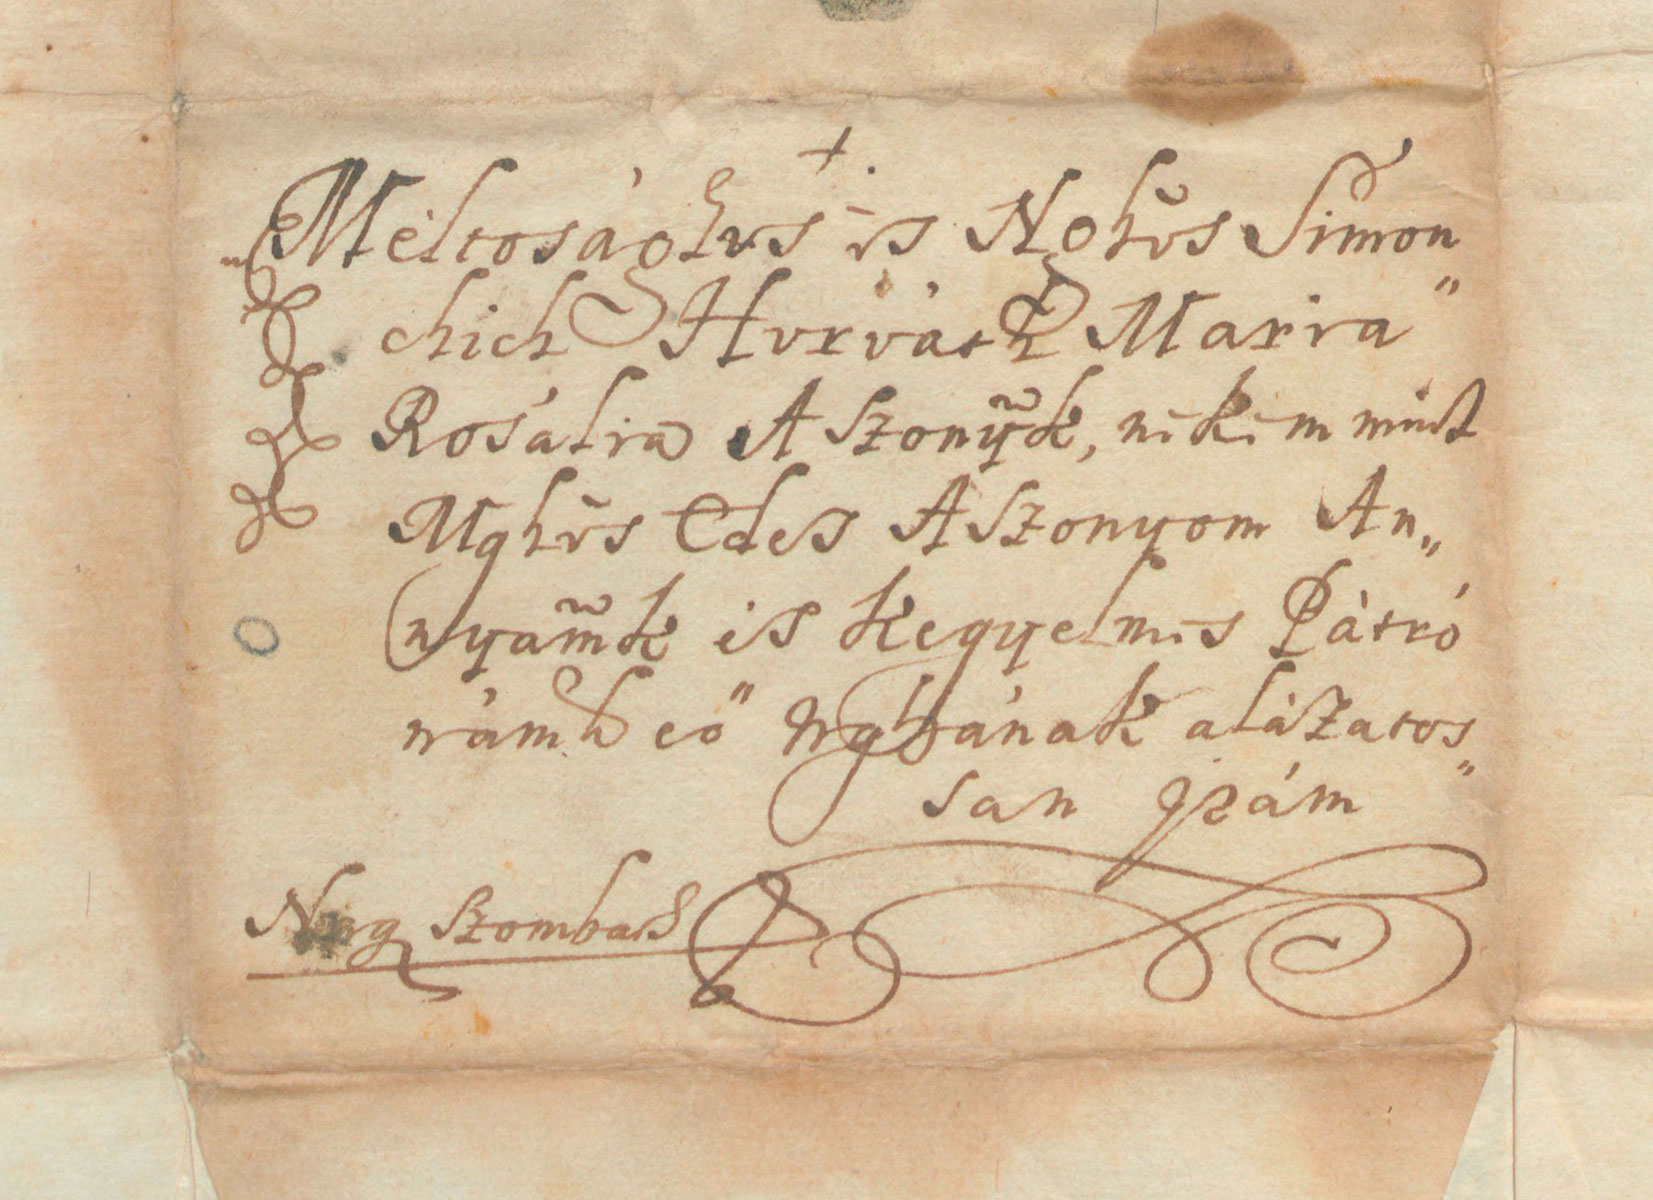 +
Méltosághvs is Nghvs Simon
chich Hvrváth Maria"
Rosália ASzonÿk, nékem mint
Mghvs Edes ASzonyom An„
nyamk is kegyelmes Pátró
námk eö" Ngyságának alázatos„
san jrám
Nagy Szombath